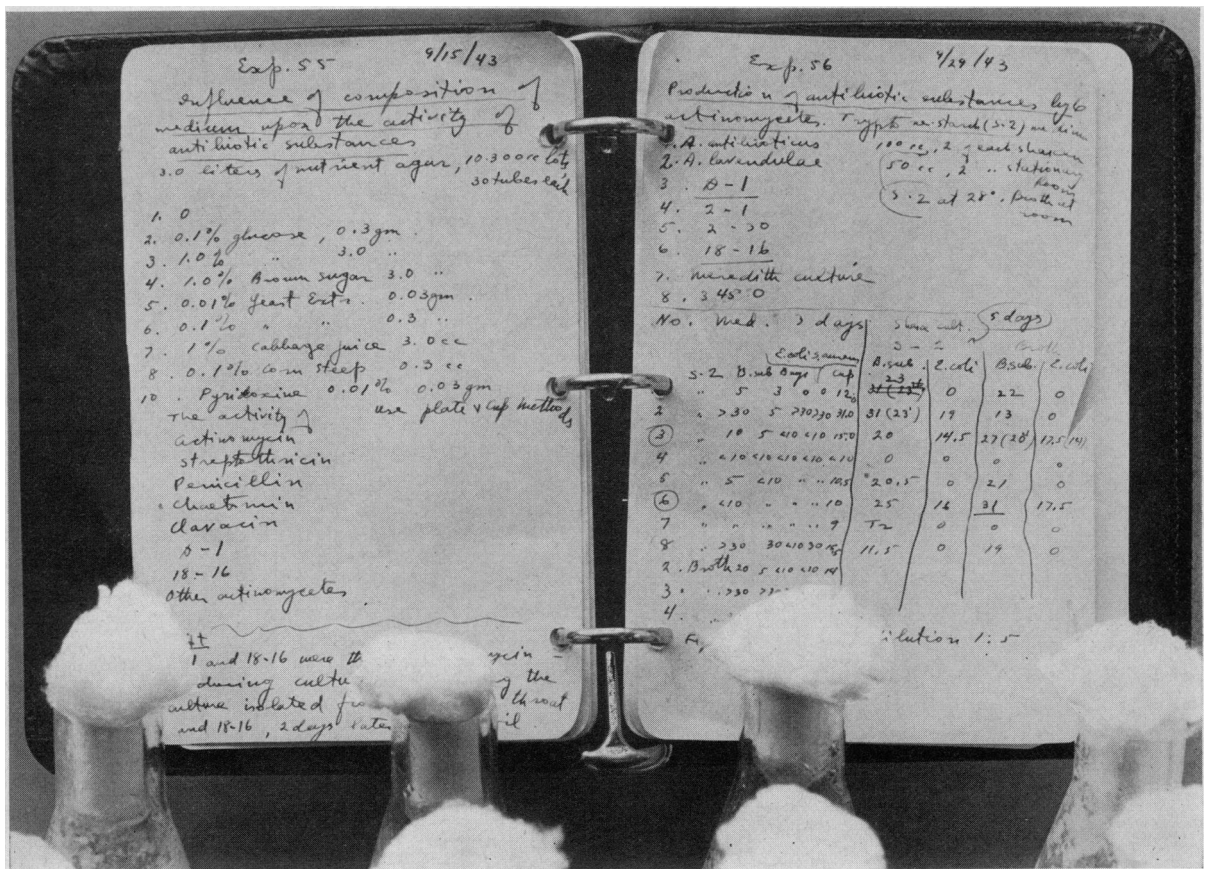 Exp. 55 9/15/43
Influence of composition of
medium upon the activity of
antibiotic substances
3.0 liters of nutrient agar, 10.300cc lots
30 tubes each
1. 0
2. 0.1% glucose, 0.3 gm.
3. 1.0% " 3.0 "
4. 1.0% Brown sugar 3.0 "
5. 0.01% Yeast Extr. 0.03gm.
6. 0.1% " " 0.3 "
7. 1% Cabbage juice 3.0cc
8. 0.1% Corn Steep 0.3 cc
10. Pyridoxine 0.01% 0.03gm
The activity of use plate & cup methods
actinomycin
streptothricin
Penicillin
Chaetomin
Clavacin
D-1
18-16
Other actinomycetes
1 and 18-16 were
during the
culture isolated throat
and 18-16, 2 days
Exp. 56 9/29/43
Production of antibiotic substances by
actinomycetes. starch (S.2) medium
1. A. antibioticus 100 cc, 2 of each shaken
2. A. lavendulae 50 cc, 2 " stationary
room
3. D-1 S.2 at 28°. Broth at
room
4. 2-1
5. 2-30
6. 18-16
7. Meredith culture
8. 3450
No. Med. 3 days 5 days
E. coli S. aureus
S-2 B. sub cup B. sub. E. coli B. sub. E. coli
23
" 5 3 0 0 12 0 22 0
2 " >30 5 >30 >30 31.0 31 (23) 19 13 0
3 " 10 5 <10 <10 15.0 20 14.5 27 (20) 17.5 (14)
4 " <10 <10 <10 <10 <10 0 0 0 0
5 " 5 <10 " " 10.5 20.5 0 21 0
6 " <10 " " " 10 25 16 31 17.5
7 " " " " " 9 Tr 0 0 0
8 " >30 30 <10 30 11.5 0 19 0
2. Broth 20 5 <10 <10 14
3. " >30
4. "
dilution 1:5